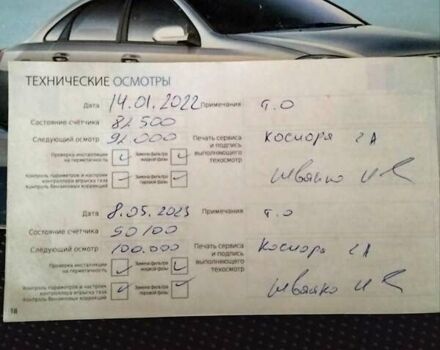 ТЕХНИЧЕСКИЕ ОСМОТРЫ
Дата 14.01.2022 Примечания т.о
Состояние счётчика 82 500
Следующий осмотр 92.000 Печать сервиса и подпись выполняющего техосмотр Косиора 2А
Проверка инсталляции на герметичность Замена фильтра жидкой фазы
Контроль параметров и настроек контроллера впрыска газа Контроль бензиновых коррекций Замена фильтра паровой фазы
Дата 8.05.2023 Примечания т.о
Состояние счётчика 90100
Следующий осмотр 100.000 Печать сервиса и подпись выполняющего техосмотр Косиора 2А
Проверка инсталляции на герметичность Замена фильтра жидкой фазы
Контроль параметров и настроек контроллера впрыска газа Контроль бензиновых коррекций Замена фильтра паровой фазы
18